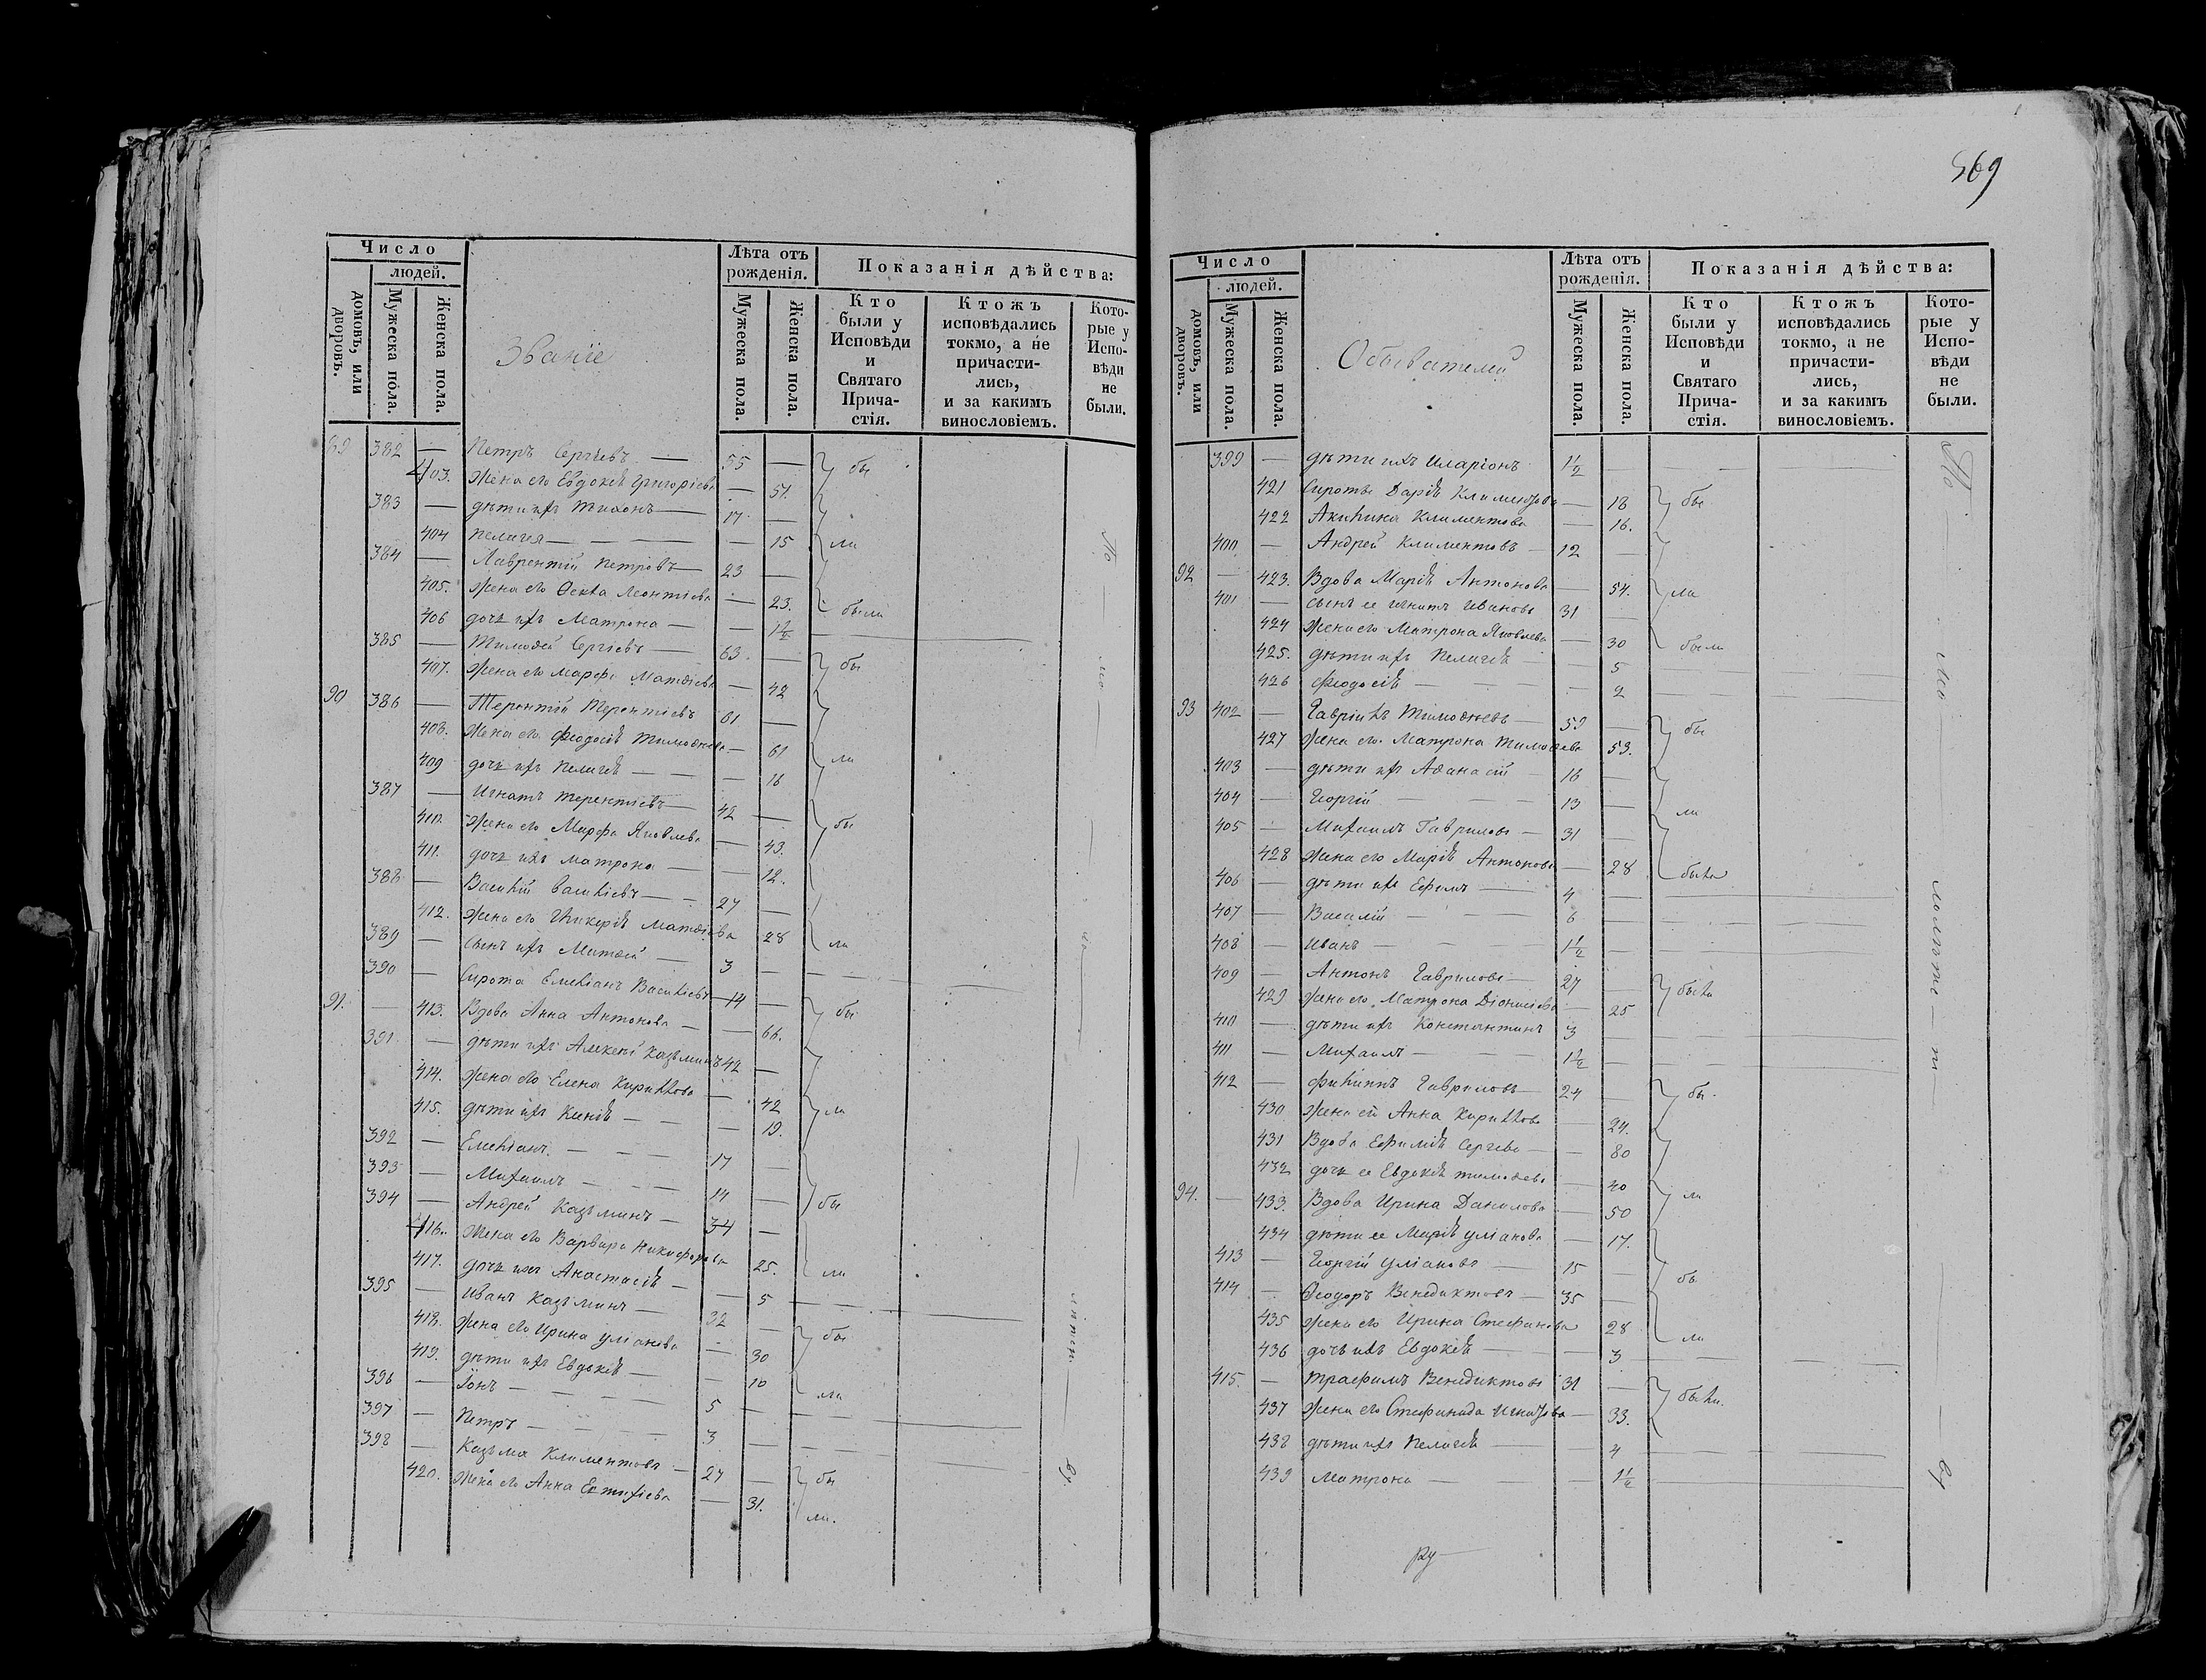 Число
людей.
домовъ, или дворовъ.
Мужеска пола.
Женска пола.
Званіе
Лѣта отъ рожденія.
Мужеска пола.
Женска пола.
Показанія дѣйства:
Кто были у Исповѣди и Святаго Прича-стія.
Ктожъ исповѣдались токмо, а не причасти-лись, и за какимъ винословіемъ.
Кото-рые у Испо-вѣди не были.
89 382 — Петръ Сергѣевъ — 55 — бы
403. Жена его Евдокія Григоріева — 51.
383 — дѣти ихъ Тихонъ — 17 —
404 Пелагея — — — — 15 ли
384 — Лаврентій Петровъ — 23 —
405. Жена его Ѳекла Леонтіева — 23. были
406 дочь ихъ Матрона — — 1½ —
385 — Тимоѳей Сергіевъ — 63. — бы
407. Жена его Марфа Матѳіева — 42
90 386 — Терентій Терентіевъ 61 —
408. Жена его Феодосія Тимоѳеева — 61 ли
409 дочь ихъ Пелагія — — — 16
387 — Игнатъ Терентіевъ — 42 — бы
410. Жена его Марфа Яковлева — 43.
411. дочь ихъ Матрона — — 12.
388 — Василій Васильевъ — 27 —
412. Жена его Гликерія Матѳіева 28 ли
389 — Сынъ ихъ Матѳей — 3 —
390 — Сирота Емеліанъ Васильевъ — 14 —
91. — 413. Вдова Анна Антонова — — 66. бы
391 — дѣти ихъ Алексей Казьминъ 42 —
414. Жена его Елена Кириллова — 42
415. дѣти ихъ — — — 19. ли
392 — Емеліанъ — — — 17
393 — Михаилъ — — — 14 —
394 — Андрей Казьминъ — 34 — бы
416. Жена его Варвара Никифорова 25.
417. дочь ихъ Анастасія — — 5 ли
395 — Иванъ Казьминъ — 32 —
418. Жена его Ирина Уліанова — 30 бы
419. дѣти ихъ Евдокія — — 10
396 — Іонъ — — — 5 — ли
397 — Петръ — — — 3 —
398 — Казьма Климентовъ — 27 — бы
420. Жена его Анна Евтихіева — 31. ли.
569
Число
людей.
домовъ, или дворовъ.
Мужеска пола.
Женска пола.
Обывателей
Лѣта отъ рожденія.
Мужеска пола.
Женска пола.
Показанія дѣйства:
Кто были у Исповѣди и Святаго Прича-стія.
Ктожъ исповѣдались токмо, а не причасти-лись, и за какимъ винословіемъ.
Кото-рые у Испо-вѣди не были.
399 — дѣти ихъ Иларіонъ 1½ —
421 Сироты Дарія Климентова — 18 бы
422 Акилина Климентова — 16.
400 — Андрей Климентовъ — 12 —
92 — 423. Вдова Марія Антонова — 54. ли
401 — сынъ ее Игнатъ Ивановъ 31 —
424 Жена его Матрона Яковлева — 30 были
425. дѣти ихъ Пелагія — — 5
426 Феодосія — — — 2
93 402 — Гавріилъ Тимоѳеевъ — 59 — бы
427 Жена его Матрона Тимоѳеева 53.
403 — дѣти ихъ Аѳанасій — 16 —
404 — Георгій — — — 13 — ли
405 — Михаилъ Гавриловъ — 31 —
428 Жена его Марія Антонова — 28 были
406 — дѣти ихъ Ефимъ — 4 —
407 — Василій — — — 6 —
408 — Иванъ — — — 1½ —
409 — Антонъ Гавриловъ — 27 — были
429 Жена его Матрона Діонисіева — 25
410 — дѣти ихъ Константинъ 3 —
411 — Михаилъ — — — 1½ —
412 — Филиппъ Гавриловъ — 24 — бы
430 Жена его Анна Кириллова — 24.
431 Вдова Ефимія Сергева — — 80
432 дочь ее Евдокія Тимоѳеева — 40 ли
94. — 433. Вдова Ирина Данилова — 50
434 дѣти ее Марія Уліанова — 17.
413 — Георгій Уліановъ — 15 — бы
414 — Ѳеодоръ Венедиктовъ — 35 —
435 Жена его Ирина Стефанова 28 ли
436 дочь ихъ Евдокія — — 3
415. — Трафимъ Венедиктовъ 31 — были.
437 Жена его Стефанида Игнатова — 33.
438 дѣти ихъ Пелагія — — 4
439 Матрона — — 1½